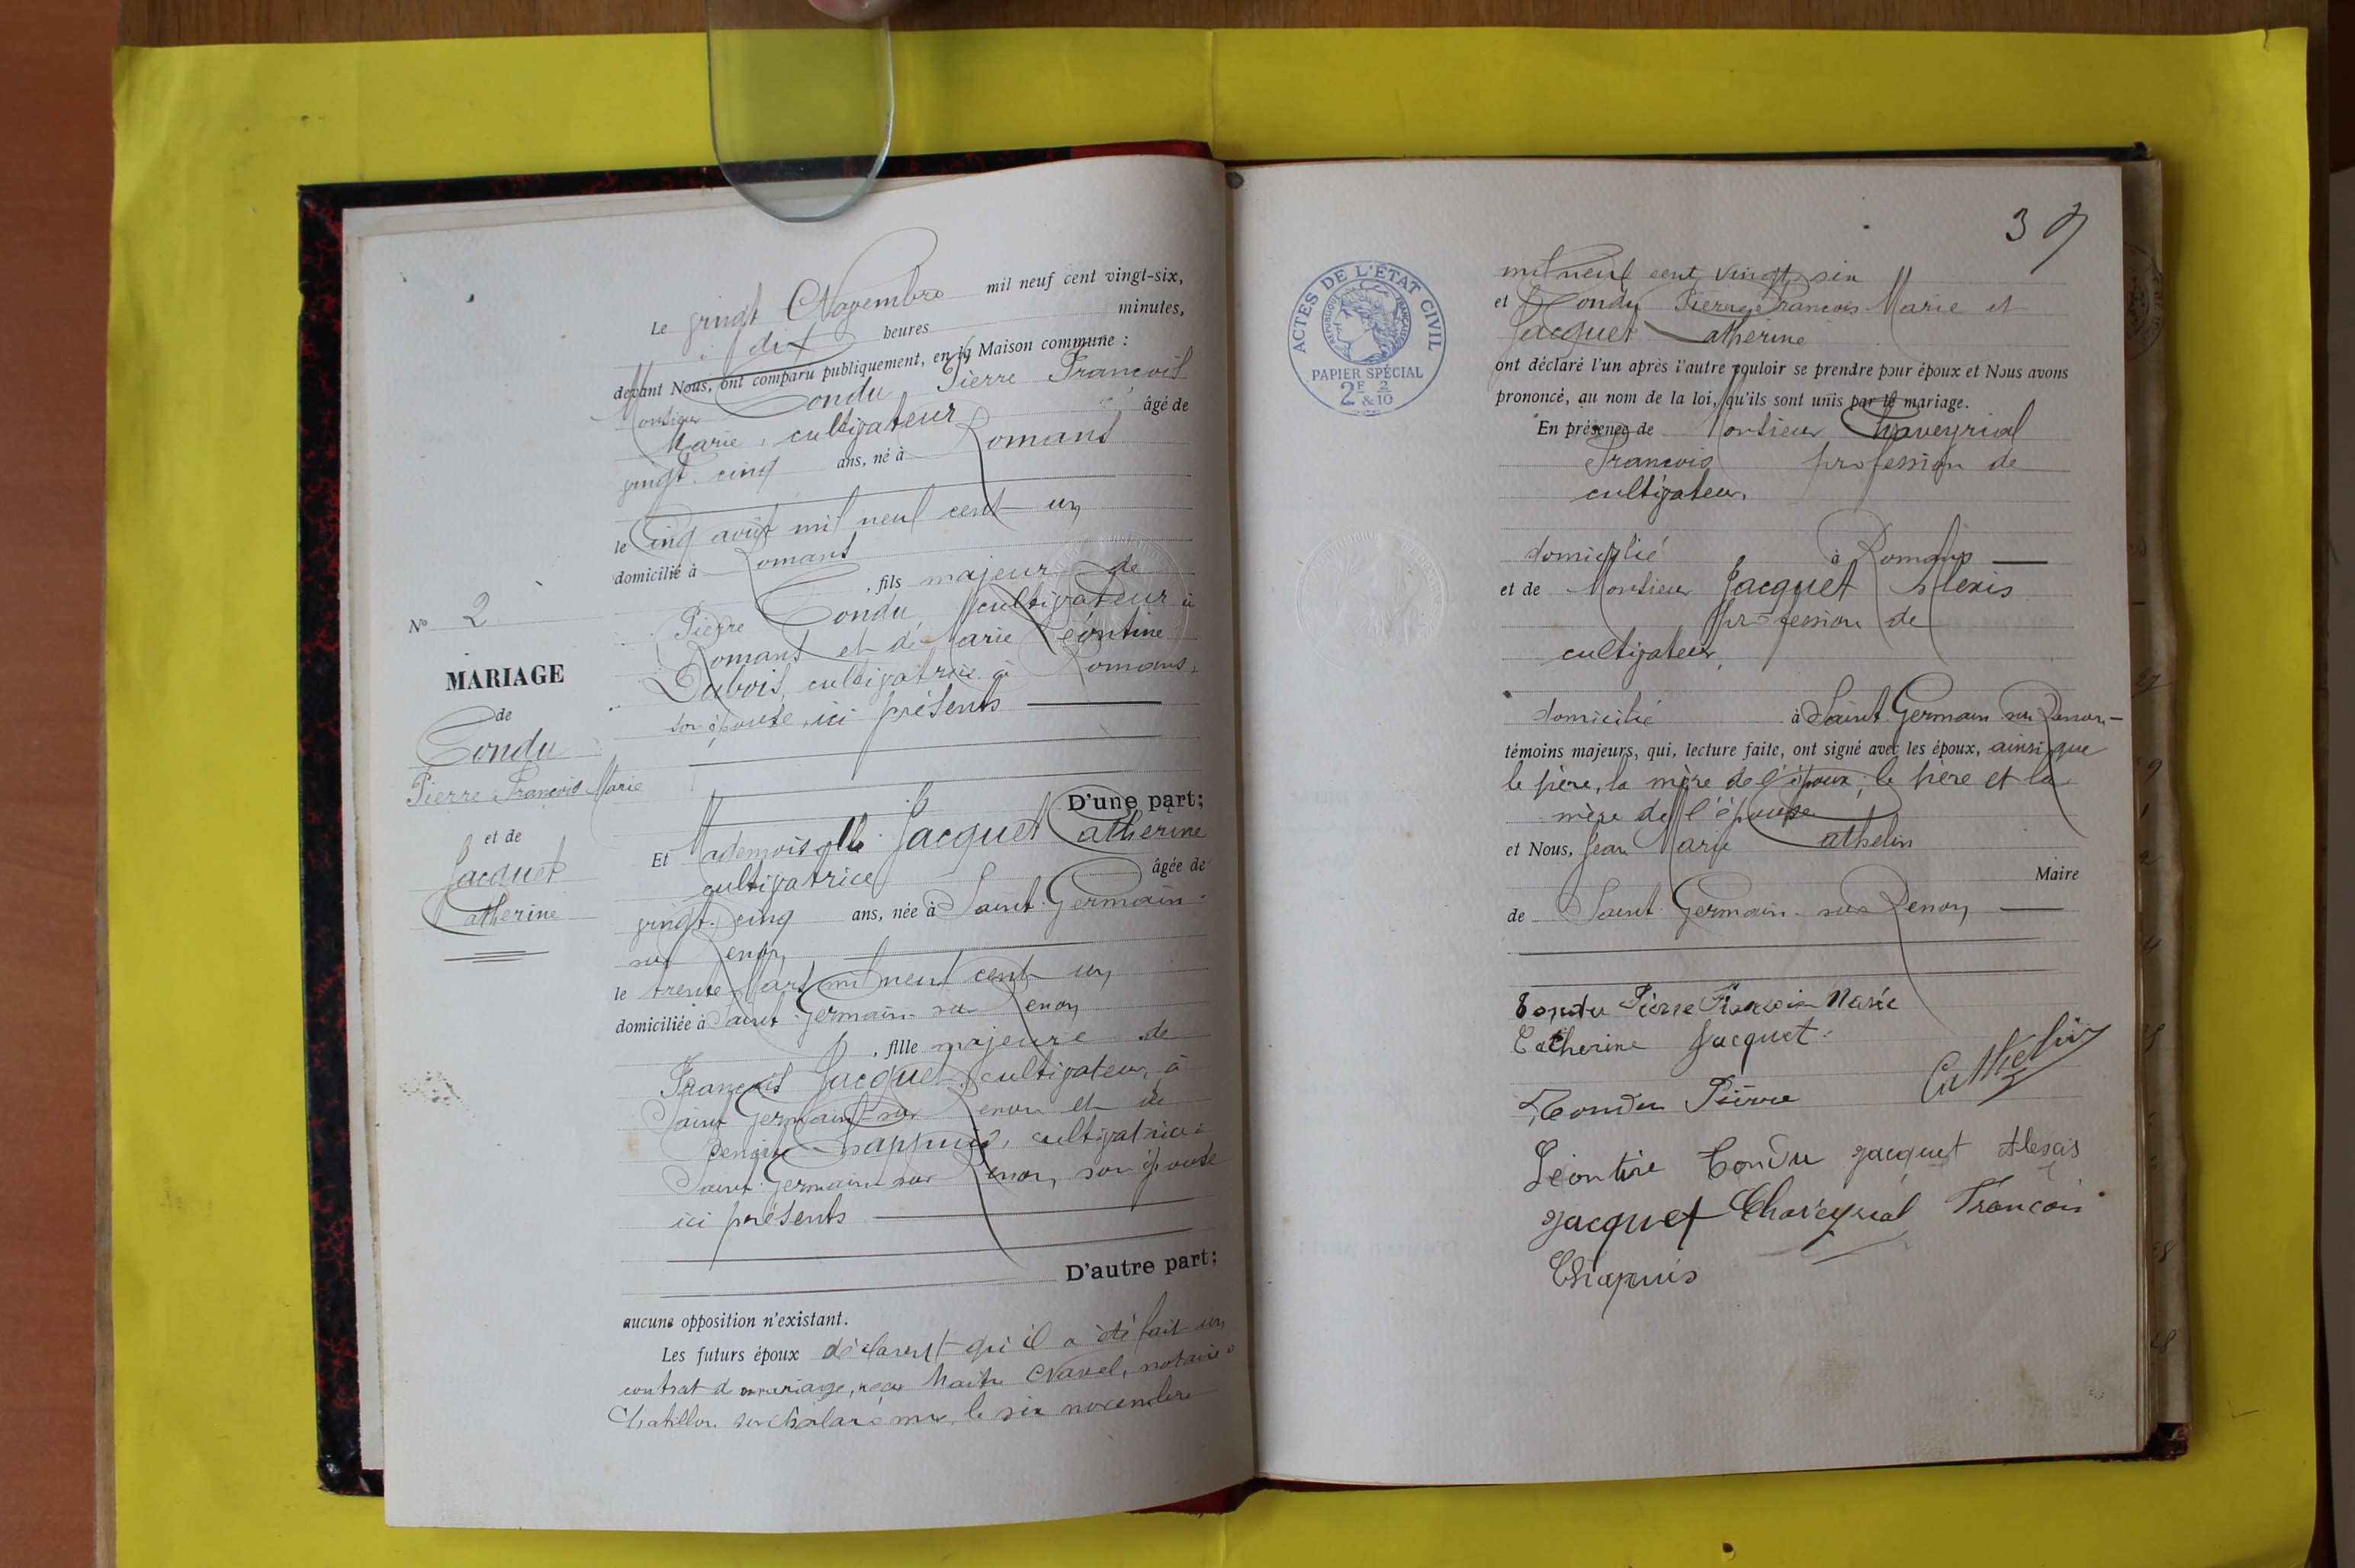 Le vingt Novembre mil neuf cent vingt-six,
à dix heures minutes,
devant Nous, ont comparu publiquement, en la Maison commune :
Monsieur Tondu Pierre François
Marie, cultivateur âgé de
vingt-cinq ans, né à Romans
le cinq août mil neuf cent un
domicilié à Romans
, fils majeur de
Pierre Tondu, cultivateur à
Romans et de Marie Léontine
Dubois, cultivatrice à Romans,
son épouse, ici présents
D'une part;
Et Mademoiselle Jacquet Catherine
cultivatrice âgée de
vingt-cinq ans, née à Saint-Germain-
sur Renon
le trente Mars mil neuf cent un
domiciliée à Saint-Germain-sur Renon
, fille majeure de
François Jacquet, cultivateur, à
Saint Germain sur Renon et de
Chappuis, cultivatrice à
Saint-Germain-sur Renon, son épouse
ici présents
D'autre part;
aucune opposition n'existant.
Les futurs époux déclarent qu'il a été fait un
contrat de mariage, reçu Maître Navel, notaire à
Chatillon sur Chalaronne, le six novembre
N° 2
MARIAGE
de
Tondu
Pierre François Marie
et de
Jacquet
Catherine
39
ACTES DE L'ÉTAT CIVIL
RÉPUBLIQUE FRANÇAISE
PAPIER SPÉCIAL
2F 2/10
&
mil neuf cent vingt six
et Tondu Pierre François Marie et
Jacquet Catherine
ont déclaré l'un après l'autre vouloir se prendre pour époux et Nous avons
prononcé, au nom de la loi, qu'ils sont unis par le mariage.
En présence de Monsieur Chaveyrial
François profession de
cultivateur,
domicilié à Romans
et de Monsieur Jacquet Alexis
profession de
cultivateur,
domicilié à Saint Germain sur Renon
témoins majeurs, qui, lecture faite, ont signé avec les époux, ainsi que
le père, la mère de l'époux, le père et la
mère de l'épouse
et Nous, Jean Marie Cathelin
Maire
de Saint-Germain-sur Renon
Tondu Pierre François Marie
Catherine Jacquet
Cathelin
Tondu Pierre
Léontine Tondu Jacquet Alexis
Jacquet Chaveyrial François
Chapuis